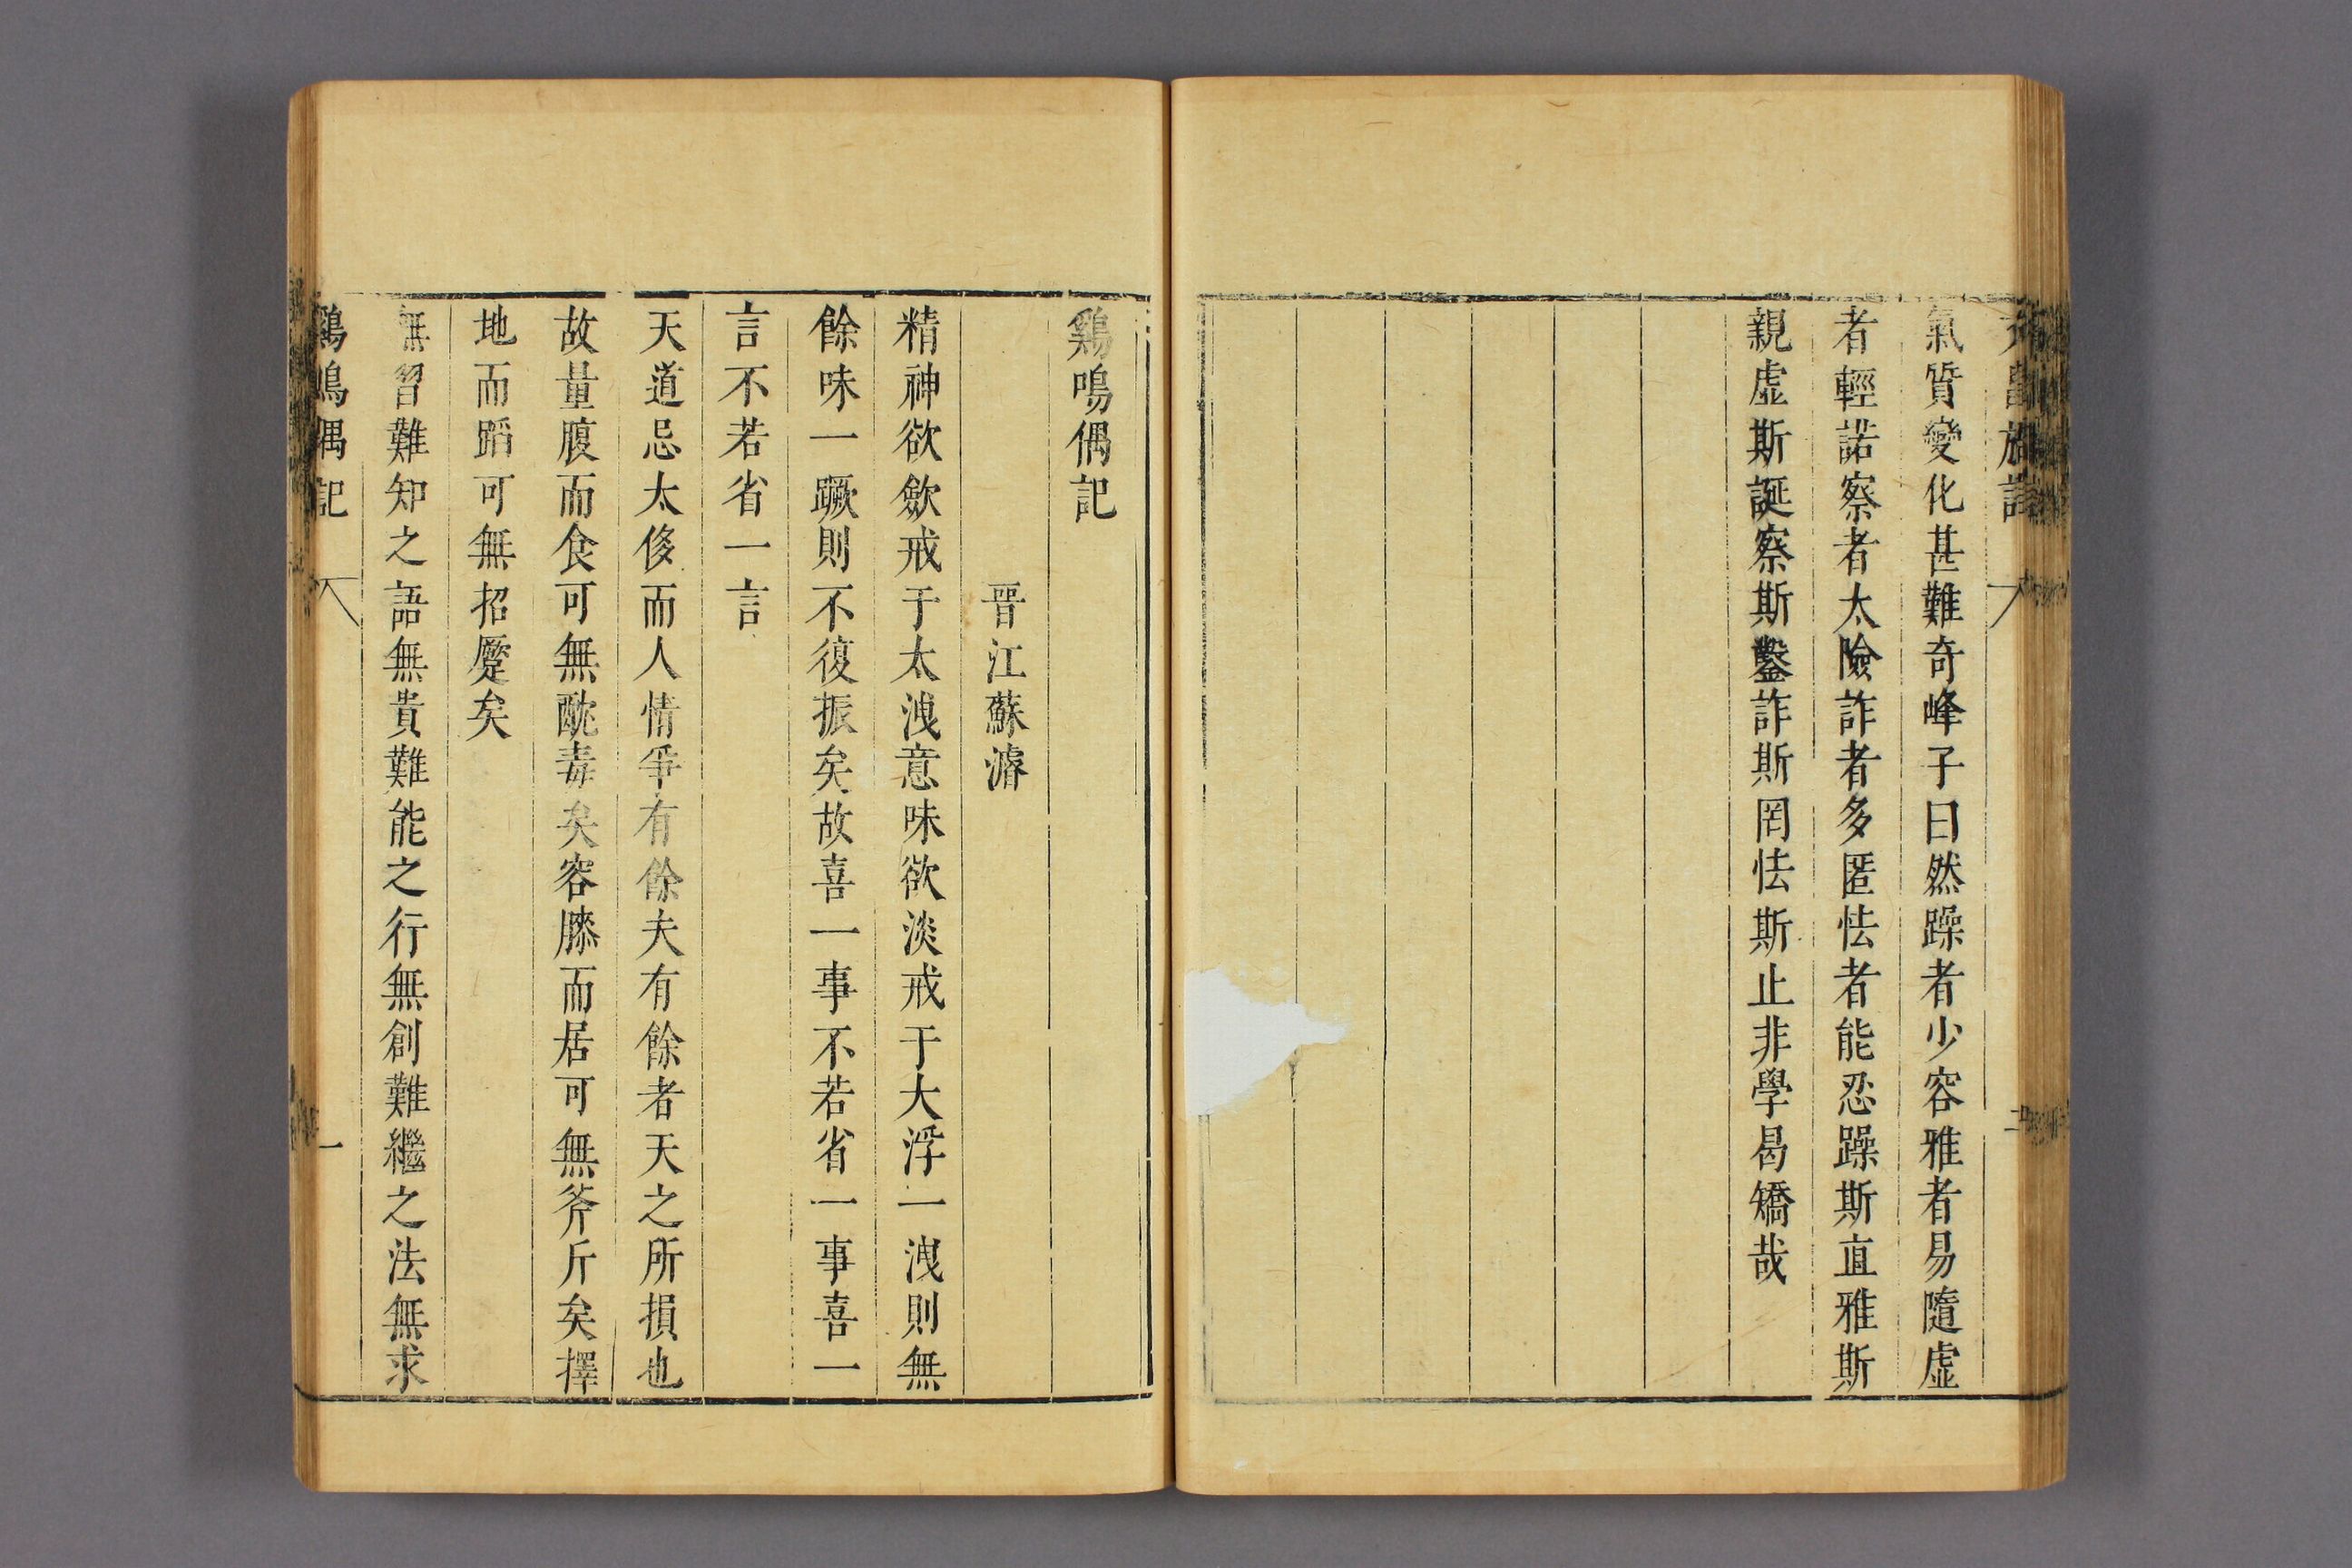 氣質變化甚難奇峰子曰然躁者少容雅者易隨虛
者輕諾察者太險詐者多匿怯者能忍躁斯直雅斯
親虛斯誕察斯鑿詐斯罔怯斯止非學曷矯哉
鷄鳴偶記
晉江蘇濬
精神欲歛戒于太洩意味欲淡戒于大浮一洩則無
餘味一蹶則不復振矣故喜一事不若省一事喜一
言不若省一言
天道忌太侈而人情爭有餘夫有餘者天之所損也
故量腹而食可無酖毒矣容膝而居可無斧斤矣擇
地而蹈可無招蹷矣
無習難知之語無貴難能之行無創難繼之法無求
鷄鳴偶記 一